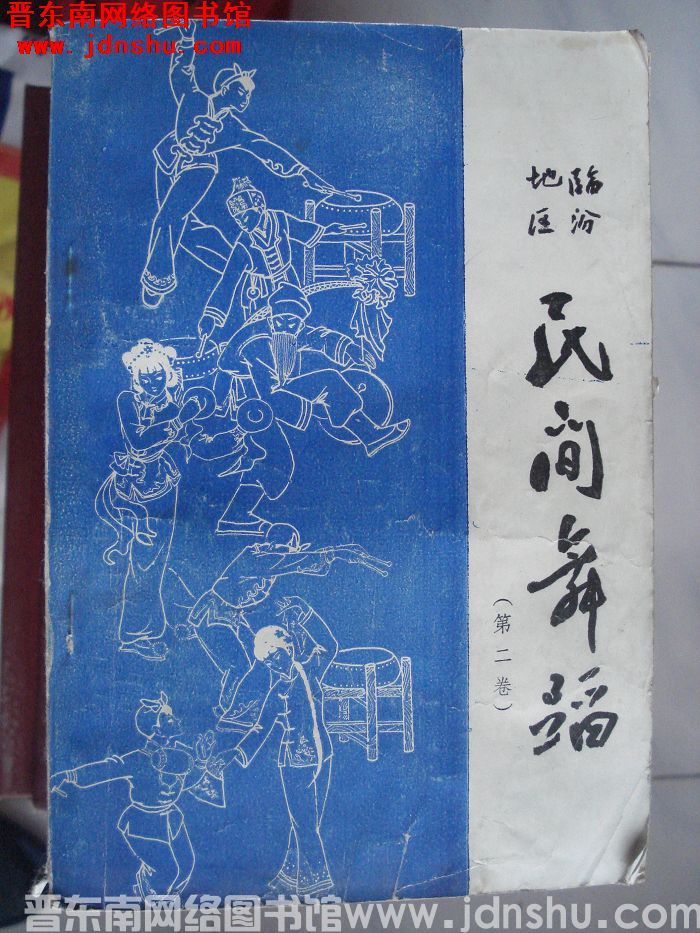 晋东南网络图书馆
www.jdnshu.com
临汾
地区
民间舞蹈
（第二卷）
晋东南网络图书馆www.jdnshu.com